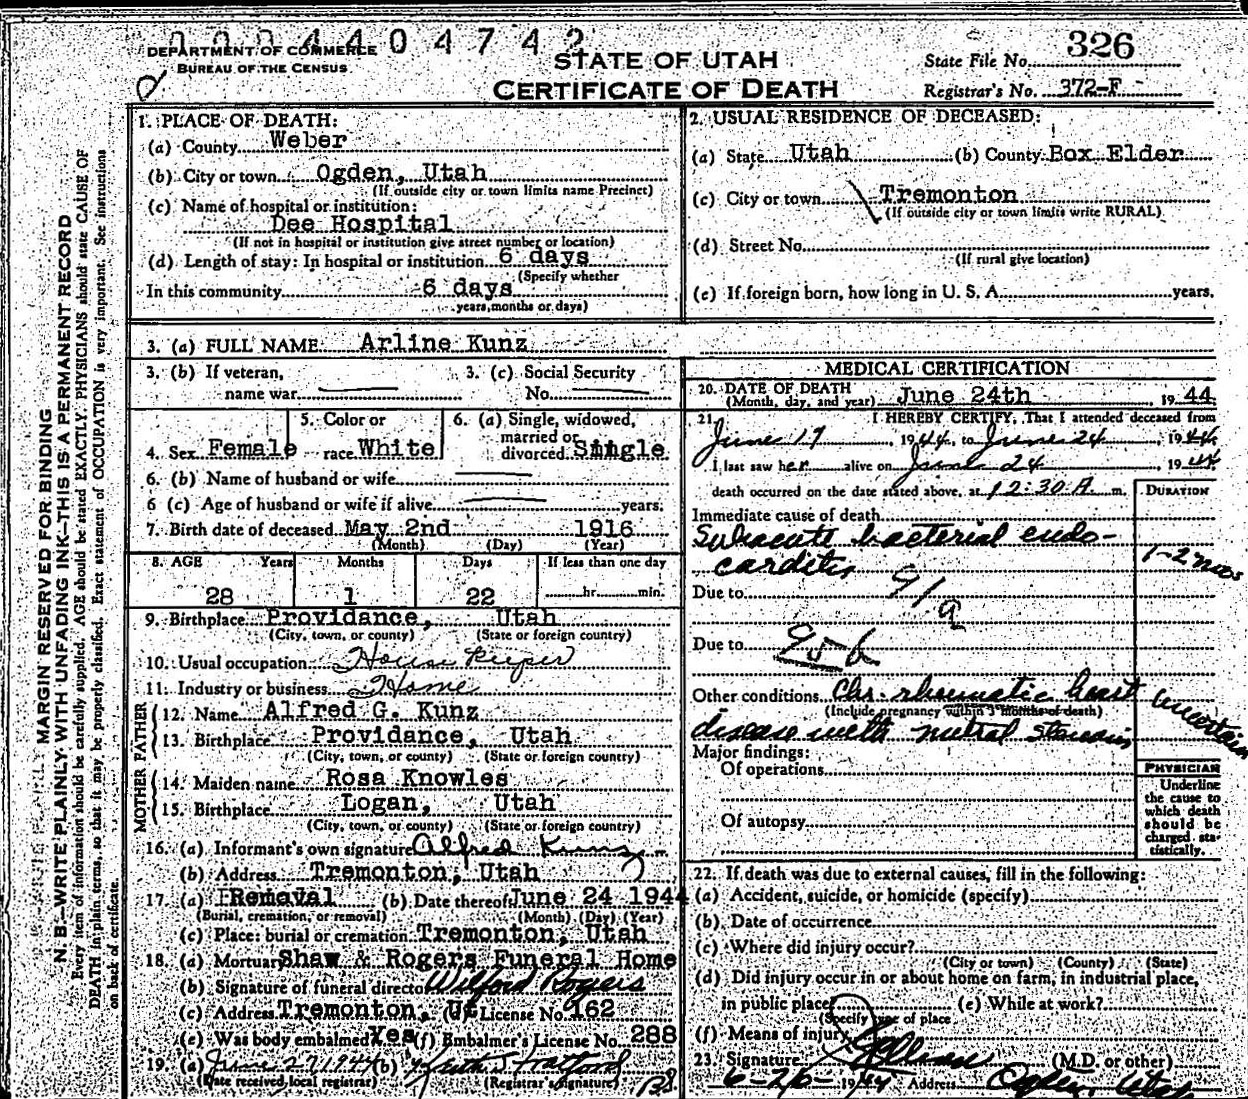 0004404742
DEPARTMENT OF COMMERCE
BUREAU OF THE CENSUS
STATE OF UTAH
CERTIFICATE OF DEATH
State File No. 326
Registrar's No. 372-F
MARGIN RESERVED FOR BINDING
N. B.—WRITE PLAINLY WITH UNFADING INK—THIS IS A PERMANENT RECORD
Every item of information should be carefully supplied. AGE should be stated EXACTLY. PHYSICIANS should state CAUSE OF
DEATH in plain terms, so that it may be properly classified. Exact statement of OCCUPATION is very important. See instructions
on back of certificate.
1. PLACE OF DEATH:
(a) County Weber
(b) City or town Ogden, Utah
(If outside city or town limits name Precinct)
(c) Name of hospital or institution:
Dee Hospital
(If not in hospital or institution give street number or location)
(d) Length of stay: In hospital or institution 6 days
(Specify whether
In this community 6 days
years, months or days)
2. USUAL RESIDENCE OF DECEASED:
(a) State Utah (b) County Box Elder
(c) City or town Tremonton
(If outside city or town limits write RURAL)
(d) Street No.
(If rural give location)
(e) If foreign born, how long in U. S. A. years.
3. (a) FULL NAME Arline Kunz
3. (b) If veteran, name war
3. (c) Social Security No.
4. Sex Female
5. Color or race White
6. (a) Single, widowed, married or divorced Single
6. (b) Name of husband or wife
6 (c) Age of husband or wife if alive years.
7. Birth date of deceased May 2nd 1916
(Month) (Day) (Year)
8. AGE Years Months Days If less than one day
28 1 22 hr. min.
9. Birthplace Providance, Utah
(City, town, or county) (State or foreign country)
10. Usual occupation House Keeper
11. Industry or business Home
FATHER
12. Name Alfred G. Kunz
13. Birthplace Providance, Utah
(City, town, or county) (State or foreign country)
MOTHER
14. Maiden name Rosa Knowles
15. Birthplace Logan, Utah
(City, town, or county) (State or foreign country)
16. (a) Informant's own signature Alfred Kunz
(b) Address Tremonton, Utah
17. (a) Removal (b) Date thereof June 24 1944
(Burial, cremation, or removal) (Month) (Day) (Year)
(c) Place: burial or cremation Tremonton, Utah
18. (a) Mortuary Shaw & Rogers Funeral Home
(b) Signature of funeral director Wilford Rogers
(c) Address Tremonton, Ut (d) License No. 162
(e) Was body embalmed Yes (f) Embalmer's License No. 288
19. (a) June 27 1944 (b)
(Date received local registrar) (Registrar's signature)
MEDICAL CERTIFICATION
20. DATE OF DEATH June 24th, 1944
(Month, day, and year)
21. I HEREBY CERTIFY, That I attended deceased from
June 17, 1944, to June 24, 1944
I last saw her alive on June 24, 1944
death occurred on the date stated above, at 12:30 A m.
DURATION
Immediate cause of death
Subacute bacterial endo-
carditis 1-2 mos
Due to 91a
Due to 95b
Other conditions Chr. rheumatic heart uncertain
(Include pregnancy within 3 months of death)
disease with mitral stenosis
Major findings:
Of operations
Of autopsy
PHYSICIAN
Underline
the cause to
which death
should be
charged sta-
tistically.
22. If death was due to external causes, fill in the following:
(a) Accident, suicide, or homicide (specify)
(b) Date of occurrence
(c) Where did injury occur?
(City or town) (County) (State)
(d) Did injury occur in or about home on farm, in industrial place,
in public place? (e) While at work?
(Specify type of place)
(f) Means of injury
23. Signature (M.D. or other)
1944 Address Ogden, Utah